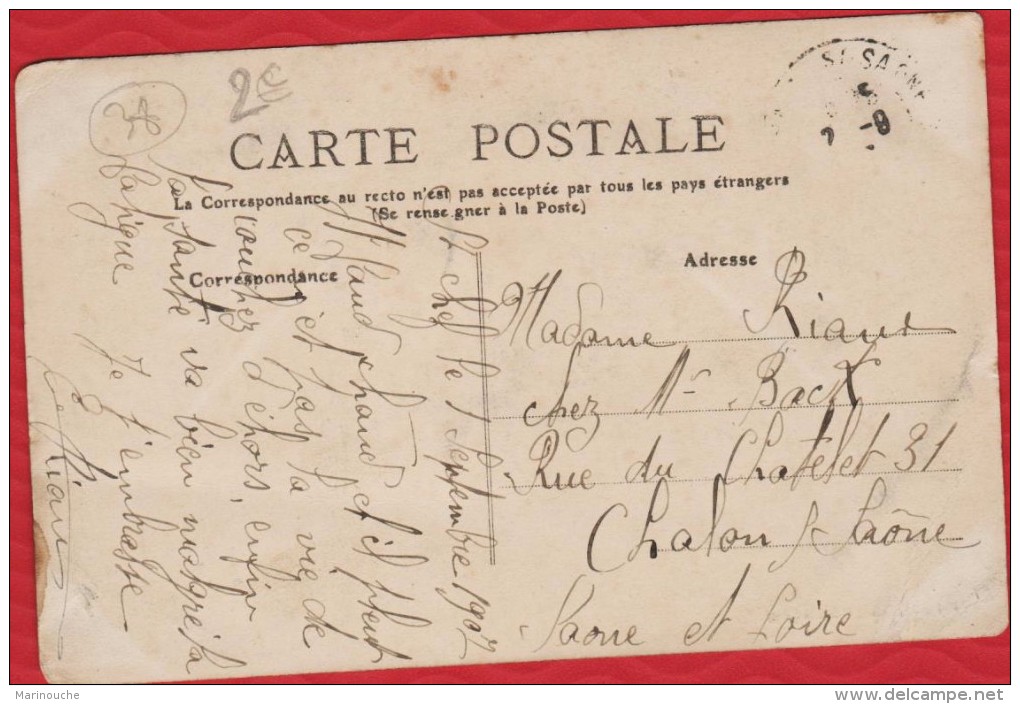 2€
CARTE POSTALE
La Correspondance au recto n'est pas acceptée par tous les pays étrangers
(Se renseigner à la Poste)
Correspondance
Adresse
St chef le 1 Septembre 1907
chaud et il pleut
ce n'est pas la vie de
coucher d'éhors, enfin
la santé va bien malgré la
fatigue Je t'embrasse
Madame Riaux
chez Mr Back
Rue du Chatelet 31
Chalon s/ Saône
Saone et Loire
Marinouche
www.delcampe.net